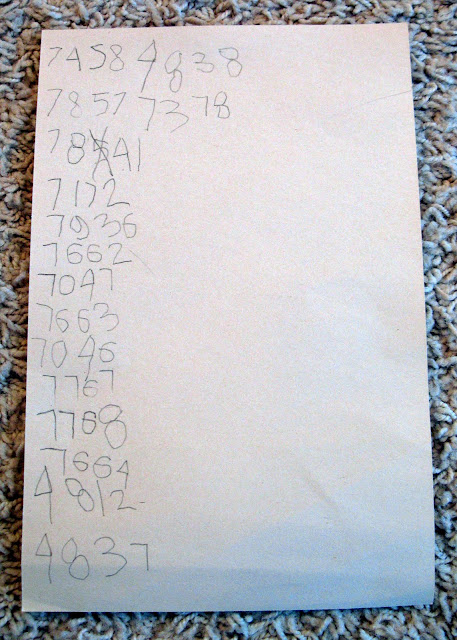 7458 4838
7857 7378
7841
7172
7036
7662
7047
7663
7046
7767
7768
7664
4812
4837